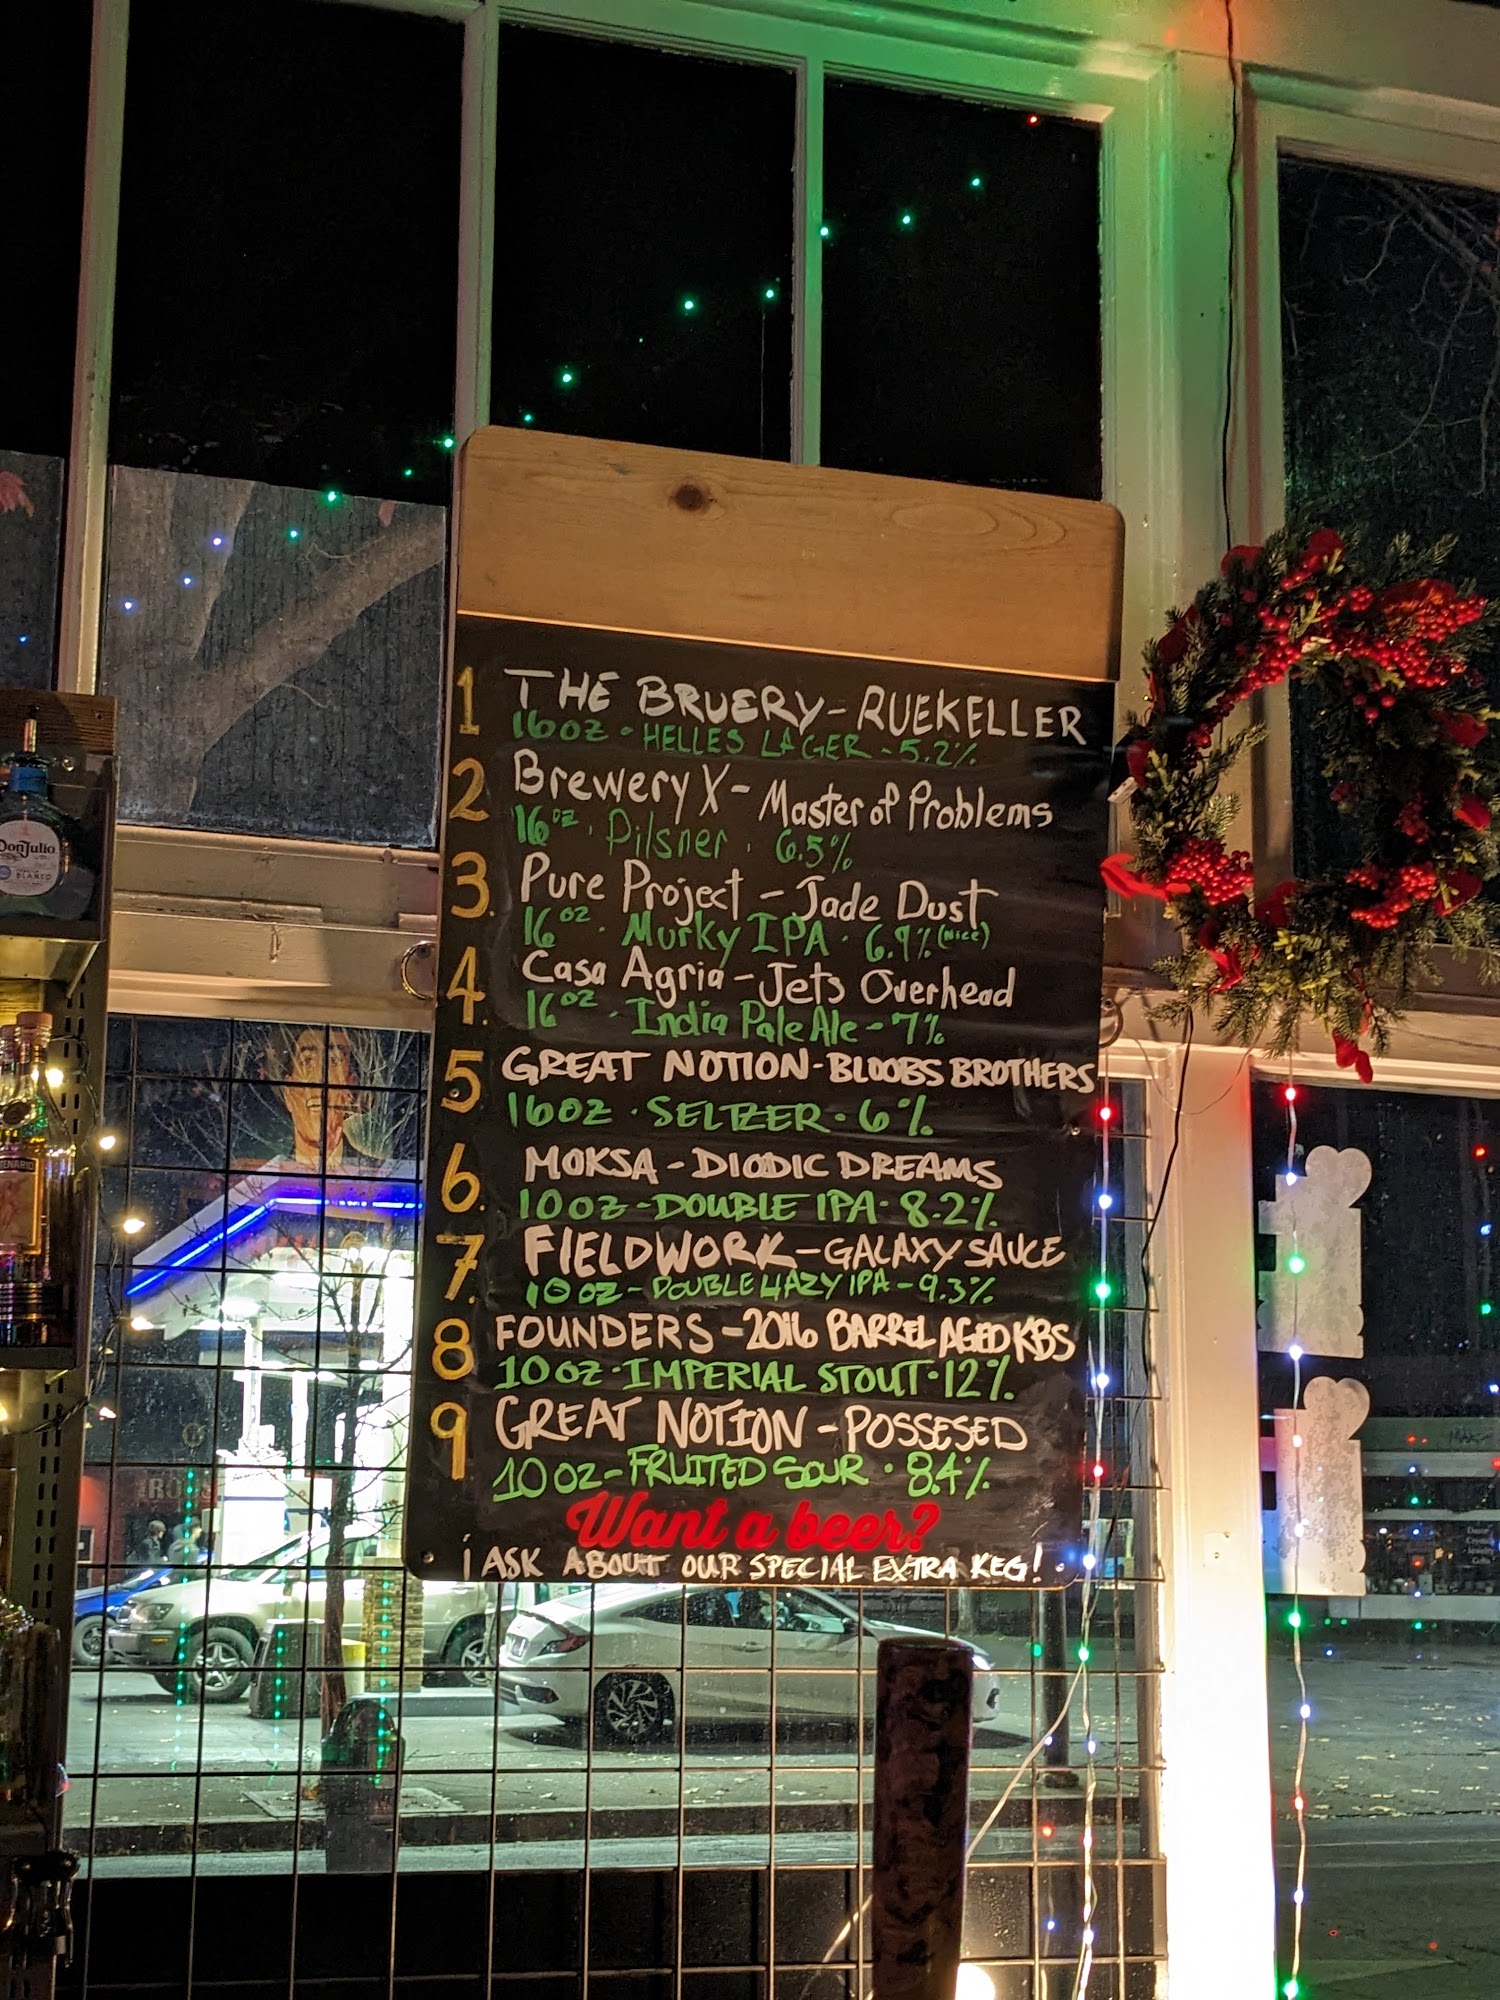 1 THE BRUERY - RUEKELLER
16OZ - HELLES LAGER - 5.2%
2 Brewery X - Master of Problems
16oz. Pilsner. 6.5%
3. Pure Project - Jade Dust
16oz. Murky IPA. 6.9% (NICE)
4. Casa Agria - Jets Overhead
16oz. India Pale Ale - 7%
5 GREAT NOTION - BLOOBS BROTHERS
16OZ · SELTZER · 6%
6. MOKSA - DIODIC DREAMS
10OZ - DOUBLE IPA · 8.2%
7. FIELDWORK - GALAXY SAUCE
10OZ - DOUBLE HAZY IPA - 9.3%
8 FOUNDERS - 2016 BARREL AGED KBS
10OZ · IMPERIAL STOUT · 12%
9 GREAT NOTION - POSSESED
10OZ - FRUITED SOUR · 8.4%
Want a beer?
¡ ASK ABOUT OUR SPECIAL EXTRA KEG!
Don Julio
BLANCO